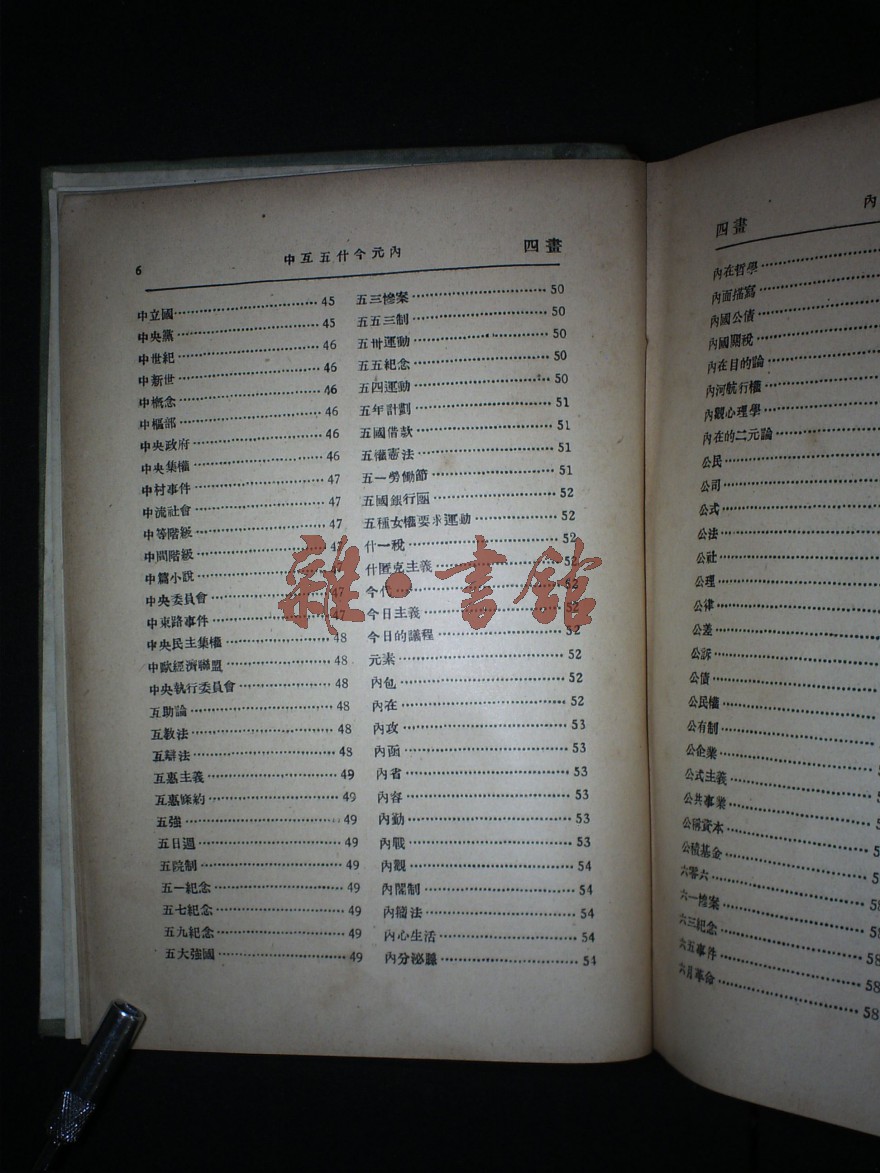 6
中互五什今元內
四畫
中立國 45
中央黨 45
中世紀 46
中新世 46
中概念 46
中樞部 46
中央政府 46
中央集權 46
中村事件 47
中流社會 47
中等階級 47
中間階級 47
中篇小說 47
中央委員會 47
中東路事件 47
中央民主集權 48
中歐經濟聯盟 48
中央執行委員會 48
互助論 48
互教法 48
互辯法 48
互惠主義 49
互惠條約 49
五強 49
五日週 49
五院制 49
五一紀念 49
五七紀念 49
五九紀念 49
五大強國 49
五三慘案 50
五五三制 50
五卅運動 50
五五紀念 50
五四運動 50
五年計劃 51
五國借款 51
五權憲法 51
五一勞働節 51
五國銀行團 52
五種女權要求運動 52
什一稅 52
什匿克主義 52
今代 52
今日主義 52
今日的議程 52
元素 52
內包 52
內在 52
內攻 53
內函 53
內省 53
內容 53
內勤 53
內戰 53
內觀 54
內閣制 54
內隨法 54
內心生活 54
內分泌腺 54
四畫
內
內在哲學
內面描寫
內國公債
內國關稅
內在目的論
內河航行權
內觀心理學
內在的二元論
公民
公司
公式
公法
公社
公理
公律
公差
公訴
公債
公民權
公有制
公企業
公式主義
公共事業
公稱資本
公積基金
六零六
六一慘案 58
六三紀念 58
六五事件 58
六月革命 58
雜·書館